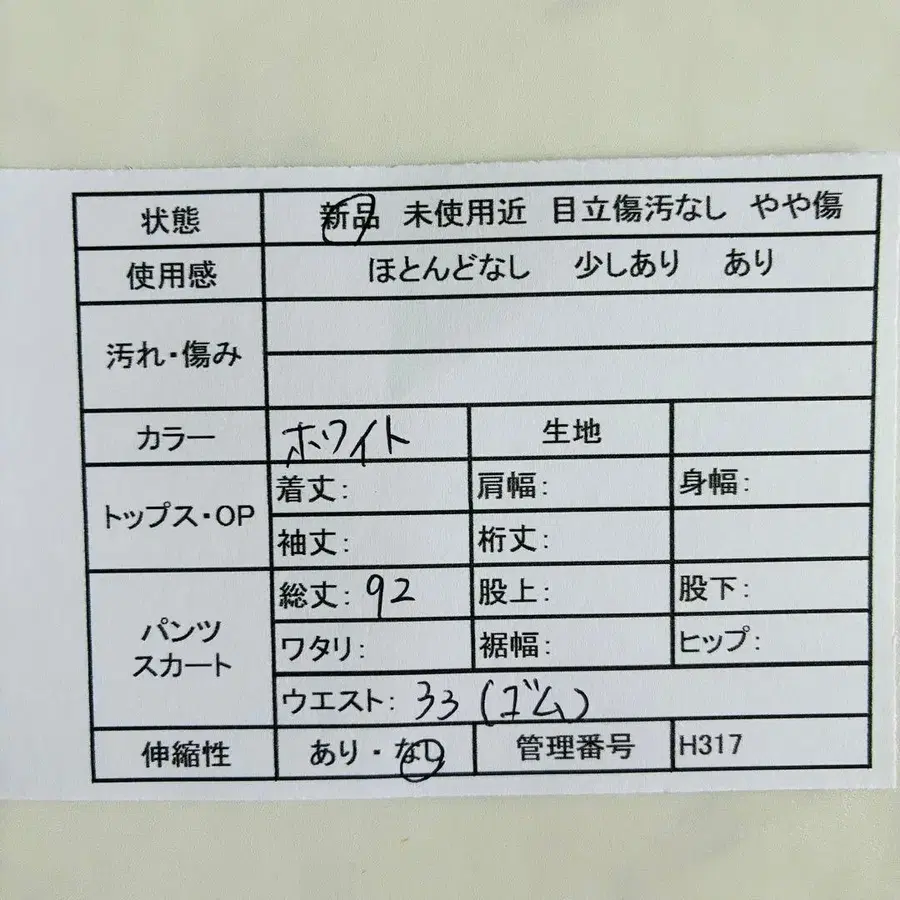 状態 新品 未使用近 目立傷汚なし やや傷
使用感 ほとんどなし 少しあり あり
汚れ・傷み
カラー ホワイト 生地
トップス・OP
着丈: 肩幅: 身幅:
袖丈: 桁丈:
パンツ
スカート
総丈: 92 股上: 股下:
ワタリ: 裾幅: ヒップ:
ウエスト: 33 (ゴム)
伸縮性 あり・なし 管理番号 H317